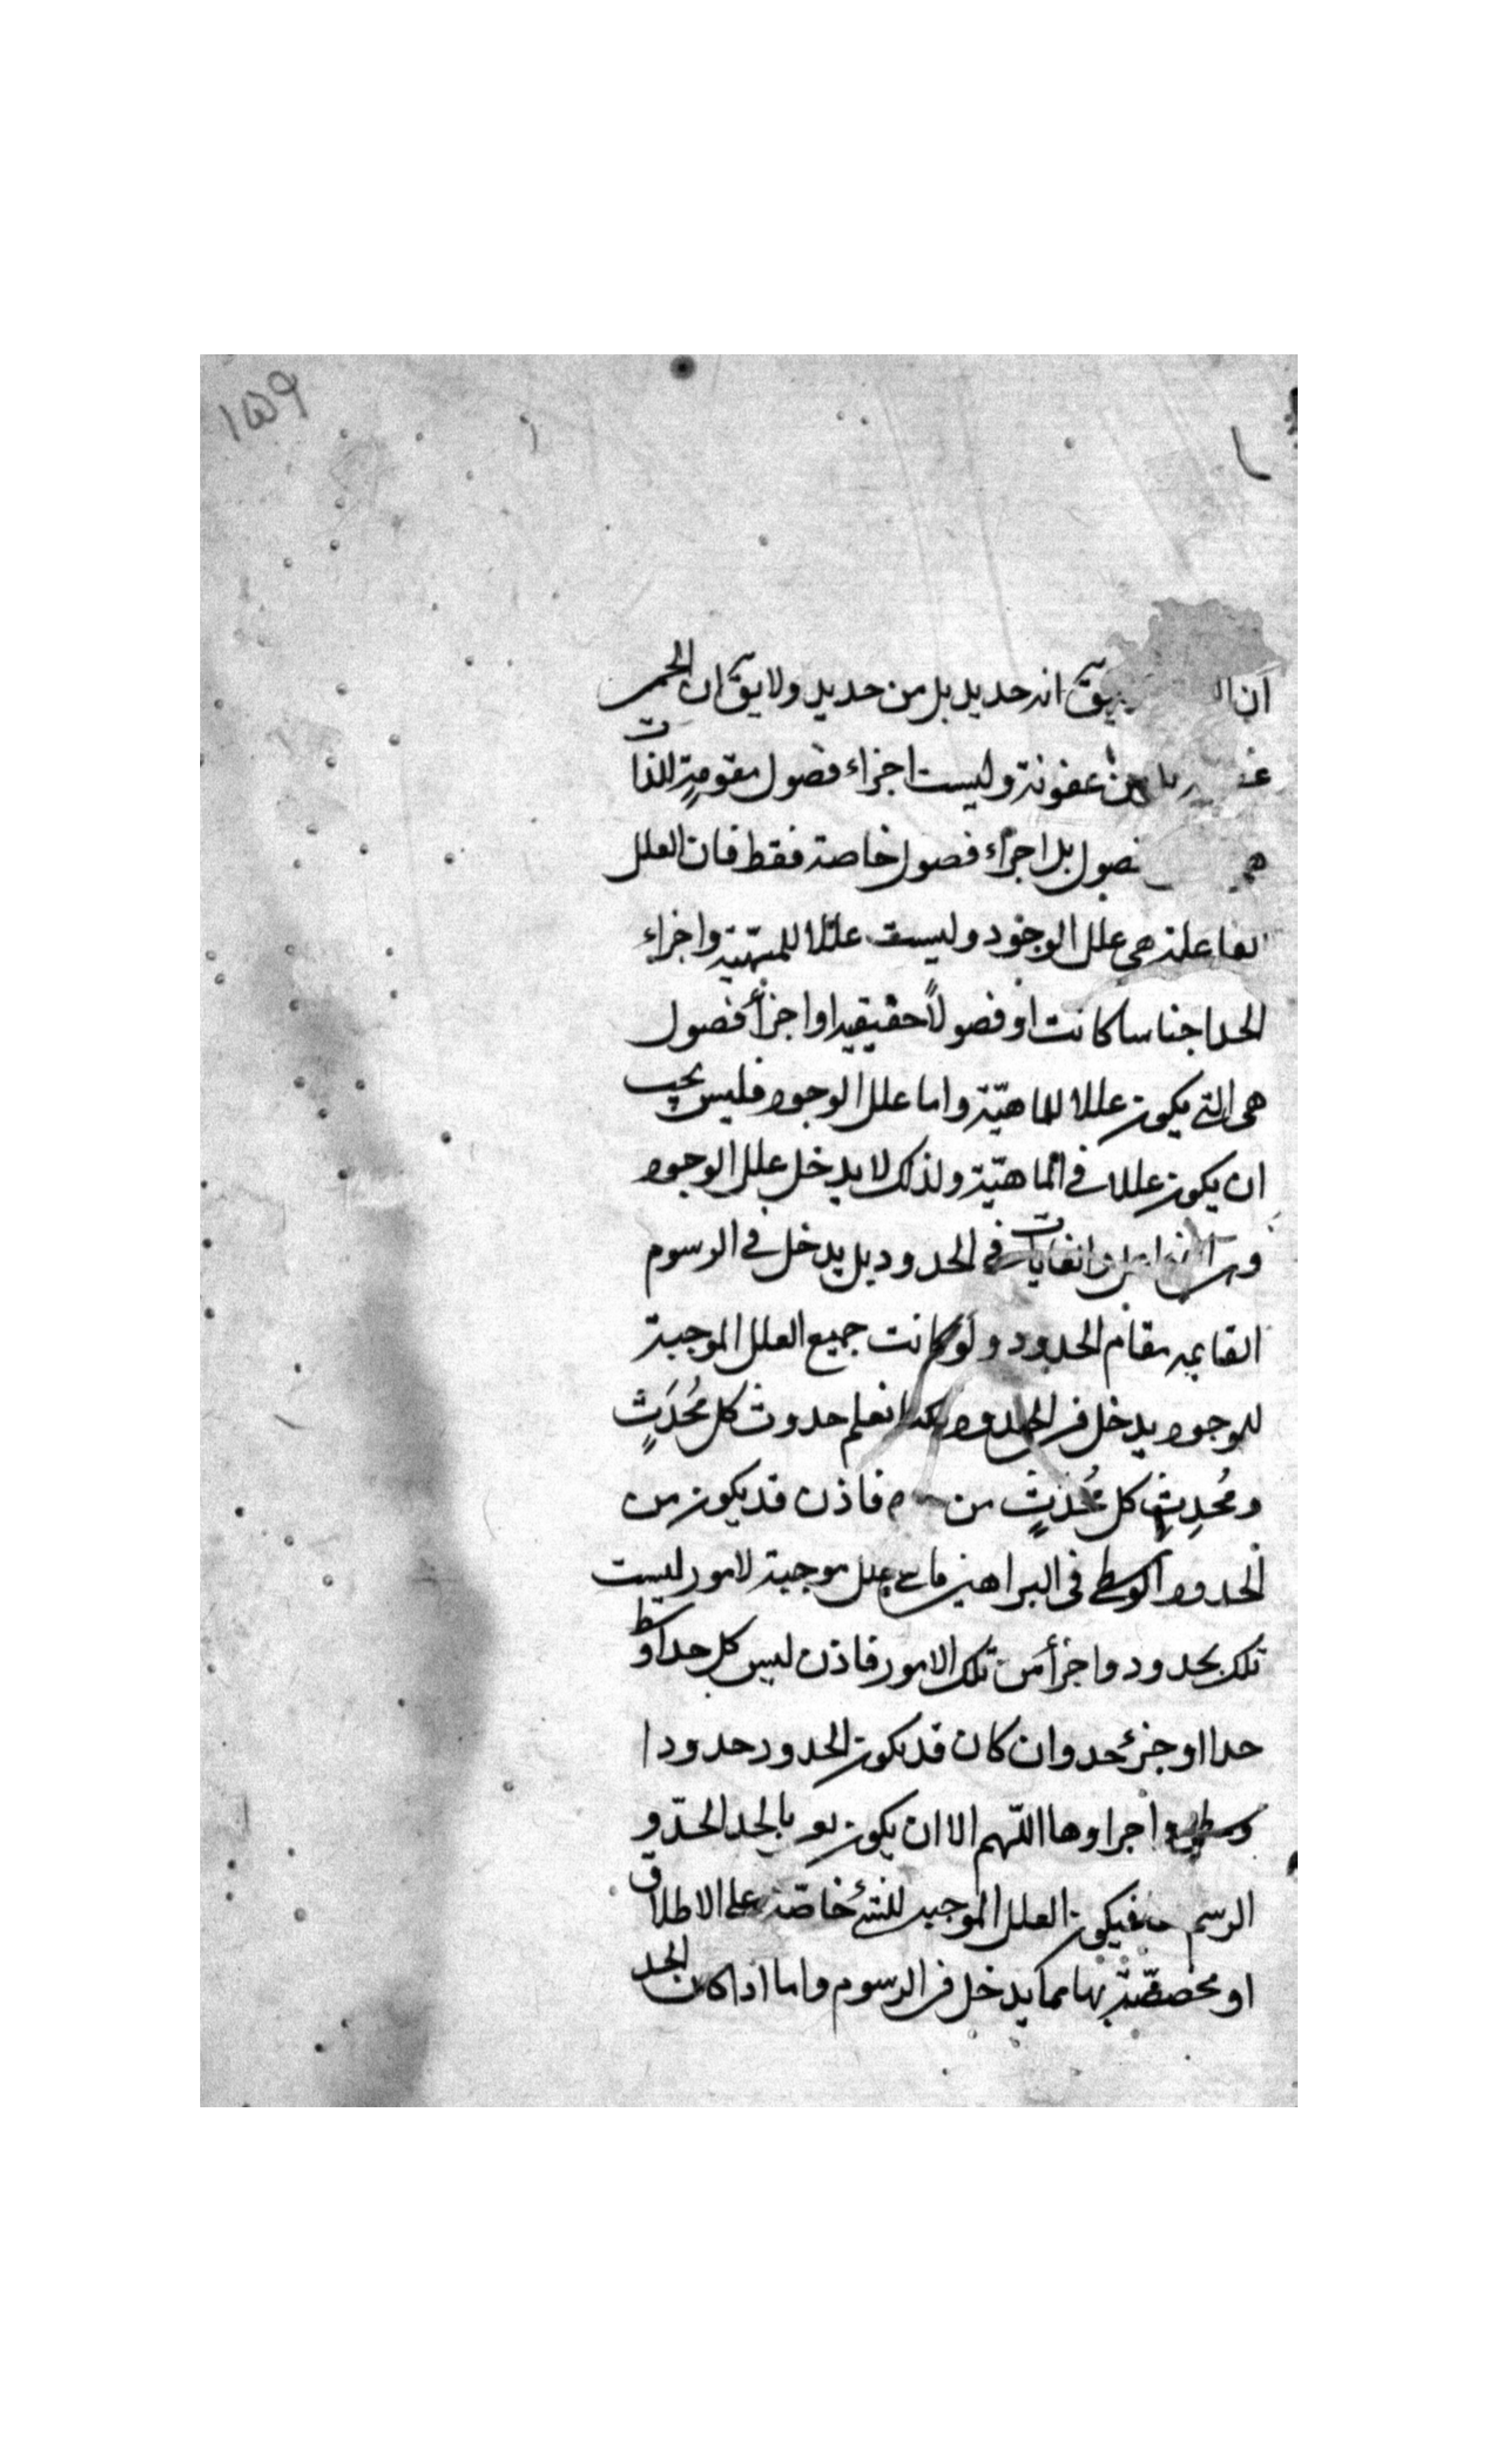 ١٥٩
ان يق انه حديد بل من حديد ولا يق ان الحمى
من عفونة وليست اجزاء فصول مقومة للذات
فصول بل اجزاء فصول خاصة فقط فان العلل
الفاعلة هى علل الوجود وليست عللا للمهية واجزاء
الحد اجناسا كانت او فصولاً حقيقيه او اجزأ فصول
هى التى يكون عللا للماهيّة واما علل الوجود فليس يجب
ان يكون عللا فى الماهيّة ولذلك لا يدخل علل الوجود
والغايات فى الحدود بل يدخل فى الرسوم
القايمه مقام الحدود ولو كانت جميع العلل الموجبة
للوجود يدخل فى الحدود لكنا نعلم حدوث كل مُحدَثٍ
ومُحدِثِ كل مُحدَثٍ من فاذن قد يكون من
الحدود الوسطى فى البراهين ما هى علل موجبة لامور ليست
تلك بحدود واجزأ من تلك الامور فاذن ليس كل حد اوسط
حدا او جزئ حد وان كان قد يكون الحدود حدودا
وسطى واجزاوها اللّهم الا ان يكون بالحد الحدّ و
الرسم فيكون العلل الموجبه للشئ خاصّة على الاطلاق
او مخصصّة بها مما يدخل فى الرسوم واما اذا كان الحد